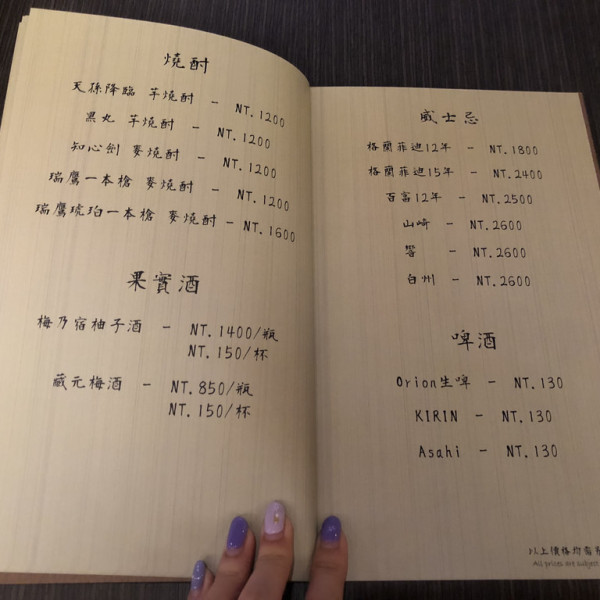 燒酎
天孫降臨 芋燒酎 - NT.1200
黑丸 芋燒酎 - NT.1200
知心劍 麥燒酎 - NT.1200
瑞鷹一本槍 麥燒酎 - NT.1200
瑞鷹琥珀一本槍 麥燒酎 - NT.1600
果實酒
梅乃宿柚子酒 - NT.1400/瓶
NT.150/杯
蔵元梅酒 - NT.850/瓶
NT.150/杯
威士忌
格蘭菲迪12年 - NT.1800
格蘭菲迪15年 - NT.2400
百富12年 - NT.2500
山崎 - NT.2600
響 - NT.2600
白州 - NT.2600
啤酒
Orion生啤 - NT.130
KIRIN - NT.130
Asahi - NT.130
以上價格均需
All prices are subject